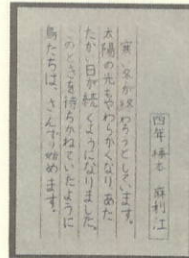 四年 橋本 麻利江
寒い冬が終わろうとしています。
太陽の光もやわらかくなりあた
たかい日が続くようになりました。
このときを待ちかねていたように
鳥たちは、さえずり始めます。